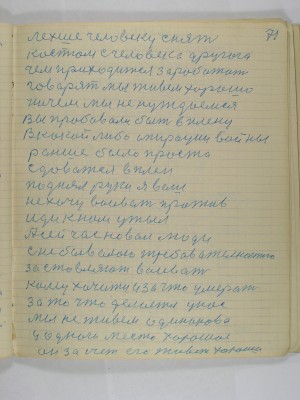 71
легше человеку снят
костюм с человека другога
чем приходится заработат
говорят мы живем хорошо
ничем мы не нуждаемся
Вы пробовали быт в плену
В какой либо страции войны
ранше было просто
сдоватся в плен
поднял руки я ваш
нехочу воеват против
иди к ном
А сейчас новая моди
с небывалою требователностю
застовляют воеват
кому хочитца за что умерат
за то что делаетса у нас
мы не живем одинаково
у одного место хорошое
он за счет его живет хорошо